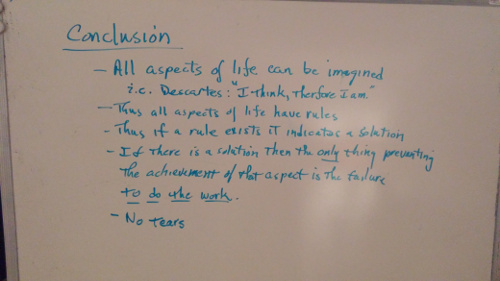 Conclusion
- All aspects of life can be imagined
i.e. Descartes: "I think, therfore I am."
- Thus all aspects of life have rules
- Thus if a rule exists it indicates a solution
- If there is a solution then the only thing preventing
the achievement of that aspect is the failure
to do the work.
- No tears